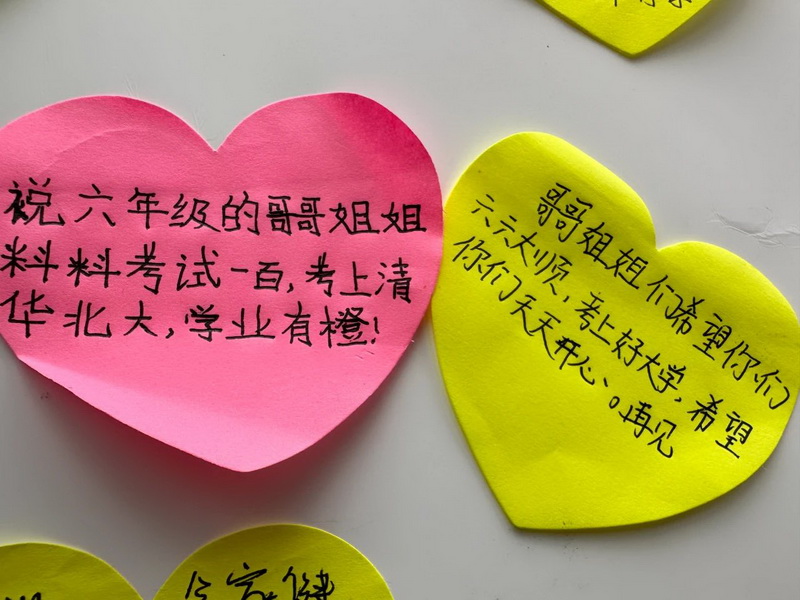 祝六年级的哥哥姐姐
料料考试一百,考上清
华北大,学业有橙!
哥哥姐姐们希望你们
六六大顺,考上好大学,希望
你们天天开心、。再见